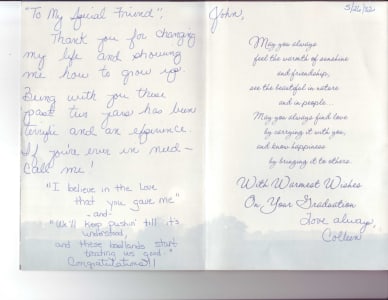 "To My Special Friend",
Thank you for changing
my life and showing
me how to grow up.
Being with you these
past two years has been
terrific and an experience.
If you're ever in need—
Call me!
"I believe in the Love
that you gave me"
-and-
"We'll keep pushin' till it's
understood,
and these badlands start
treating us good."
Congratulations!!
John,
5/26/82
May you always
feel the warmth of sunshine
and friendship,
see the beautiful in nature
and in people...
May you always find love
by carrying it with you,
and know happiness
by bringing it to others.
With Warmest Wishes
On Your Graduation
Love always,
Colleen